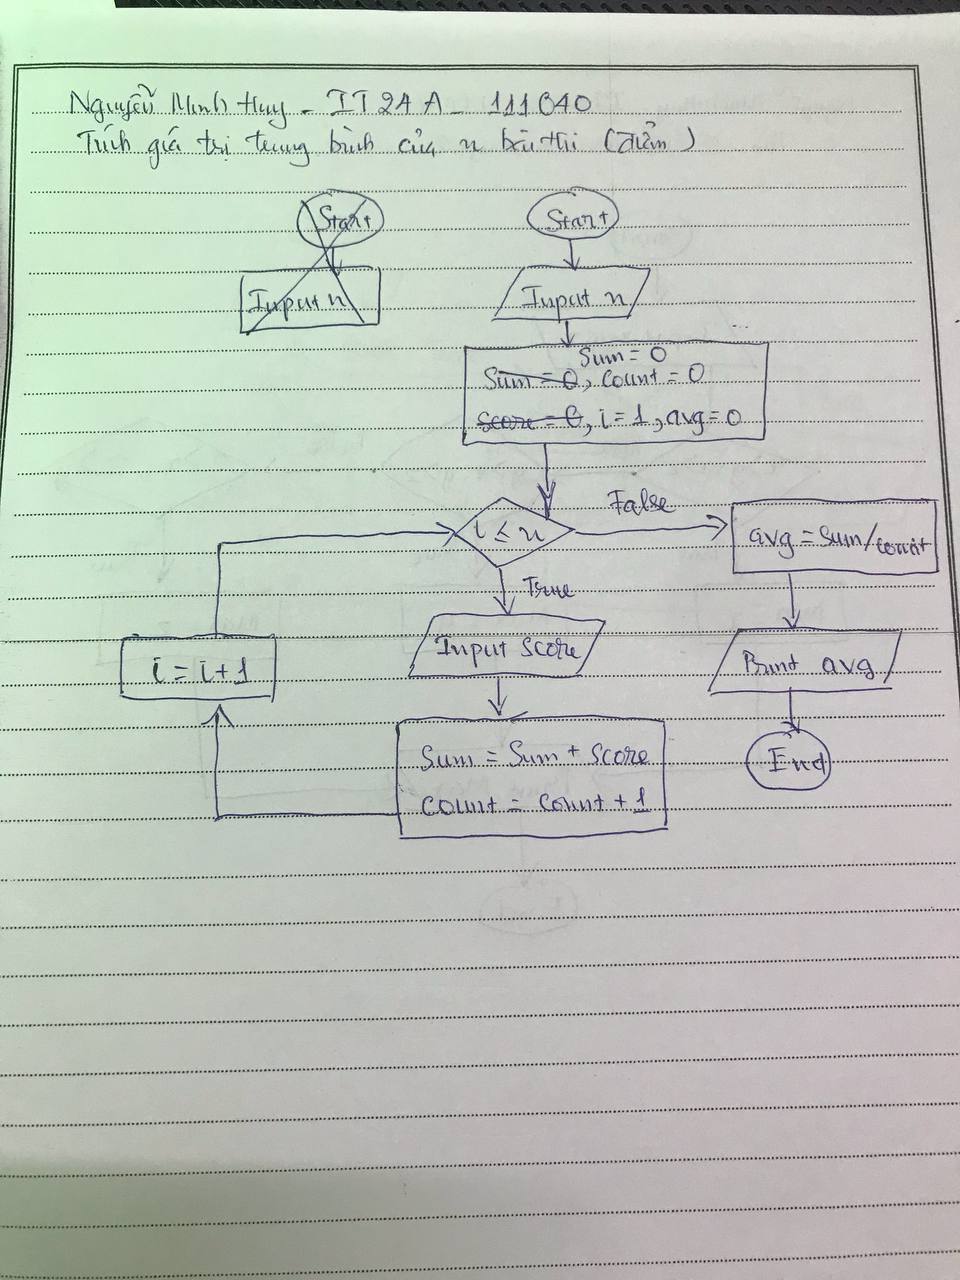 Nguyễn Minh Huy - IT24A - 111040
Tính giá trị trung bình của n bài thi (điểm)
Start
Input n
Start
Input n
Sum = 0
Sum = 0, count = 0
score = 0, i = 1, avg = 0
i ≤ n
False
avg = Sum/count
True
Input score
Print avg
i = i + 1
Sum = Sum + score
count = count + 1
End